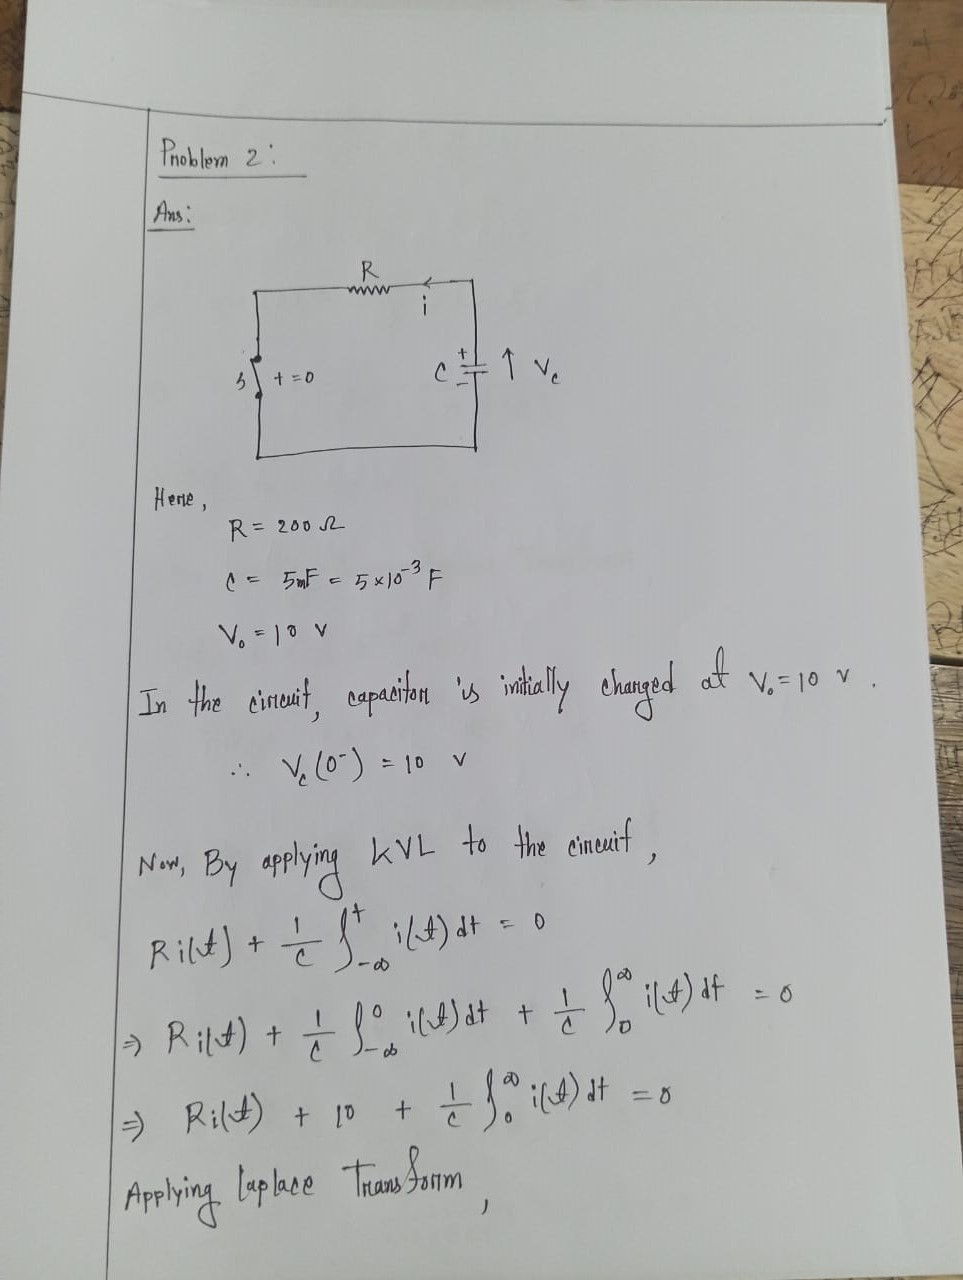 Problem 2:
Ans:
R
i
S
t=0
C
+
-
↑ Vc
Here,
R = 200 Ω
C = 5mF = 5×10⁻³ F
V₀ = 10 V
In the circuit, capacitor is initially charged at V₀ = 10 V.
∴ Vc(0⁻) = 10 V
Now, By applying KVL to the circuit,
Ri(t) + 1/C ∫_{-∞}^{t} i(t) dt = 0
⇒ Ri(t) + 1/C ∫_{-∞}^{0} i(t) dt + 1/C ∫_{0}^{∞} i(t) dt = 0
⇒ Ri(t) + 10 + 1/C ∫_{0}^{∞} i(t) dt = 0
Applying Laplace Transform,